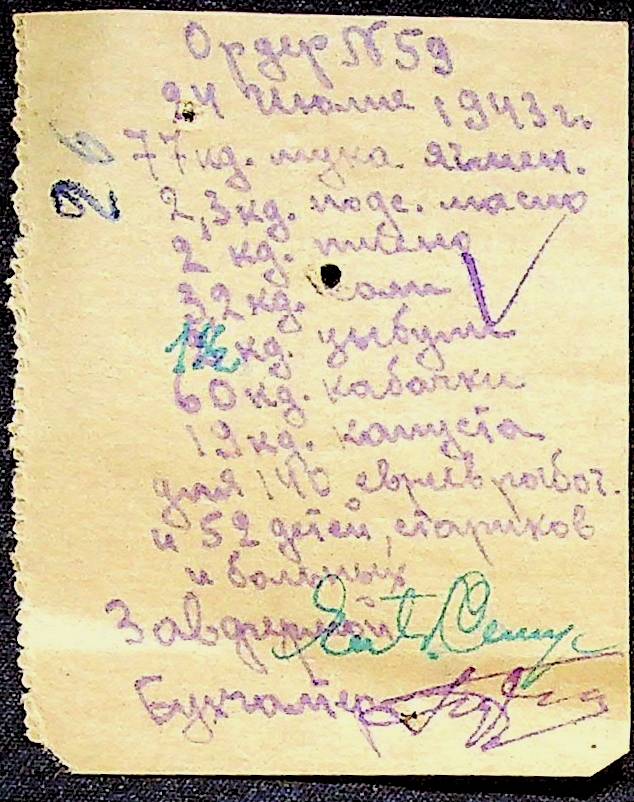 Ордер № 59
24 июля 1943 г.
77 кг. мука ячмен.
2,3 кг. подс. масло
2 кг. пшено
3,2 кг. соли
1½ кг. цыбули
60 кг. кабачки
19 кг. капуста
для 140 евреев работ.
и 52 детей, стариков
и больных
Завфермой
Бухгалтер